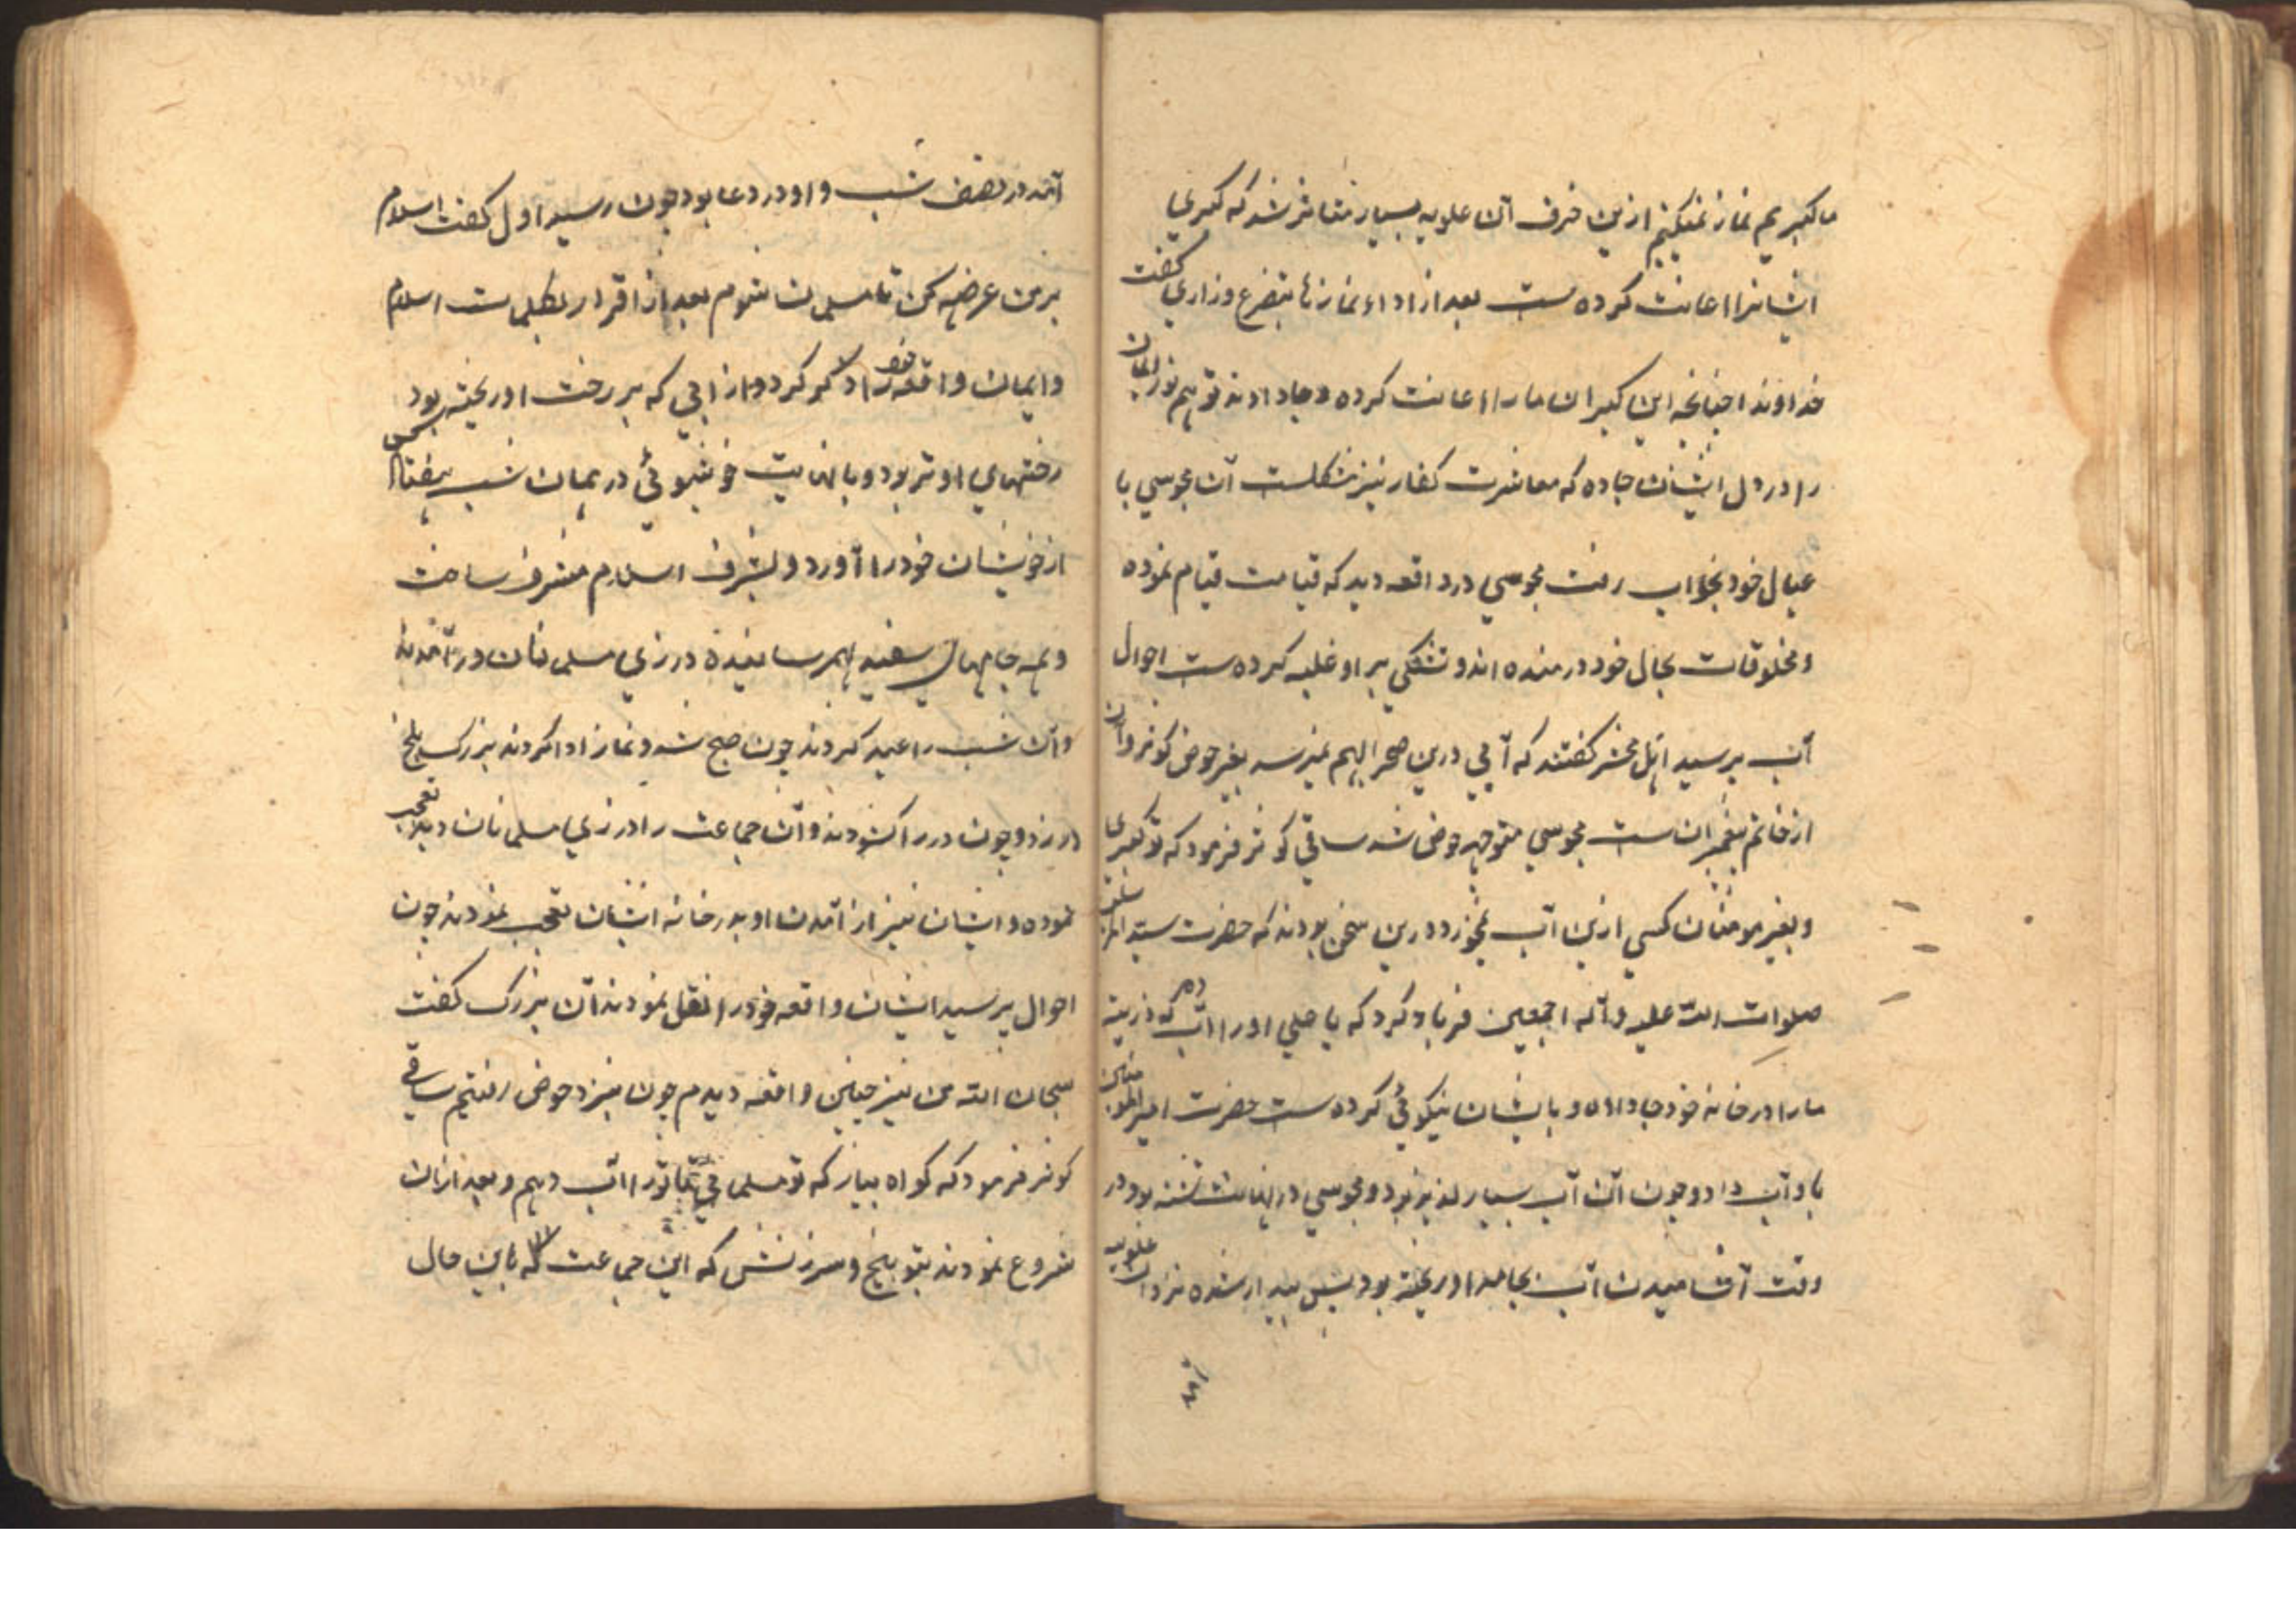 ما کبریم نماز نمیکنیم ازین حرف آن علویه بسیار متاثر شد که کبری
ایشانرا اعانت کرده است بعد از اداء نمازها بتضرع و زاری گفت
خداوندا چنانچه این کبران ما را اعانت کرده و جا دادند تو هم نور ایمان
را در دل ایشان جا ده که معاشرت کفار نیز مشکلست آن مجوسی با
عیال خود بخواب رفت مجوسی در واقعه دید که قیامت قیام نموده
و مخلوقات بحال خود درمنده اند و تشنکی بر او غلبه کرده است احوال
آب پرسید اهل محشر کفتند که آبی درین صحرا بهم نمیرسد بغیر حوض کوثر و آن
از خاتم پیغمبران است مجوسی متوجه حوض شد ساقی کوثر فرمود که تو کبری
و بغیر مومنان کسی ازین آب نمیخورد درین سخن بودند که حضرت سید
صلوات الله علیه و آله اجمعین فریاد کرد که یا علی او را آب ده که ذریته
ما را در خانه خود جا داده و بایشان نیکوئی کرده است حضرت امیر المومنین
باو آب داد و چون آن آب بسیار لذیذ بود و مجوسی در نهایت تشنه بود در
وقت آشامیدن آب بجامه او ریخته بود پس بیدار شده نزد آن علویه
آمد در نصف شب و او در دعا بود چون رسید اول کفت اسلام
بر من عرضه کن تا مسلمان شوم بعد از اقرار بکلمات اسلام
و ایمان واقعه خود را ذکر کرد و از آبی که بر رخت او ریخته بود
رختهای او تر بود و با نهایت خوشبوئی در همان شب هفتاد کس
از خویشان خود را آورد و بشرف اسلام مشرف ساخت
و همه جامهای سفید بهم رسانیده در زی مسلمانان درآمدند
و آن شب را عید کردند چون صبح شد و نماز ادا کردند بزرک بلخ
در زد و چون در را کشودند و آن جماعت را در زی مسلمانان دید تعجب
نموده و ایشان نیز از آمدن او بدر خانه ایشان تعجب نمودند چون
احوال پرسید ایشان واقعه خود را نقل نمودند آن بزرک کفت
سبحان الله من نیز چنین واقعه دیدم چون بنزد حوض رفتیم ساقی
کوثر فرمود که کواه بیار که تو مسلمانی تا ترا آب دهم و بعد ازان
شروع نمودند بتوبیخ و سرزنش که این جماعت که باین حال